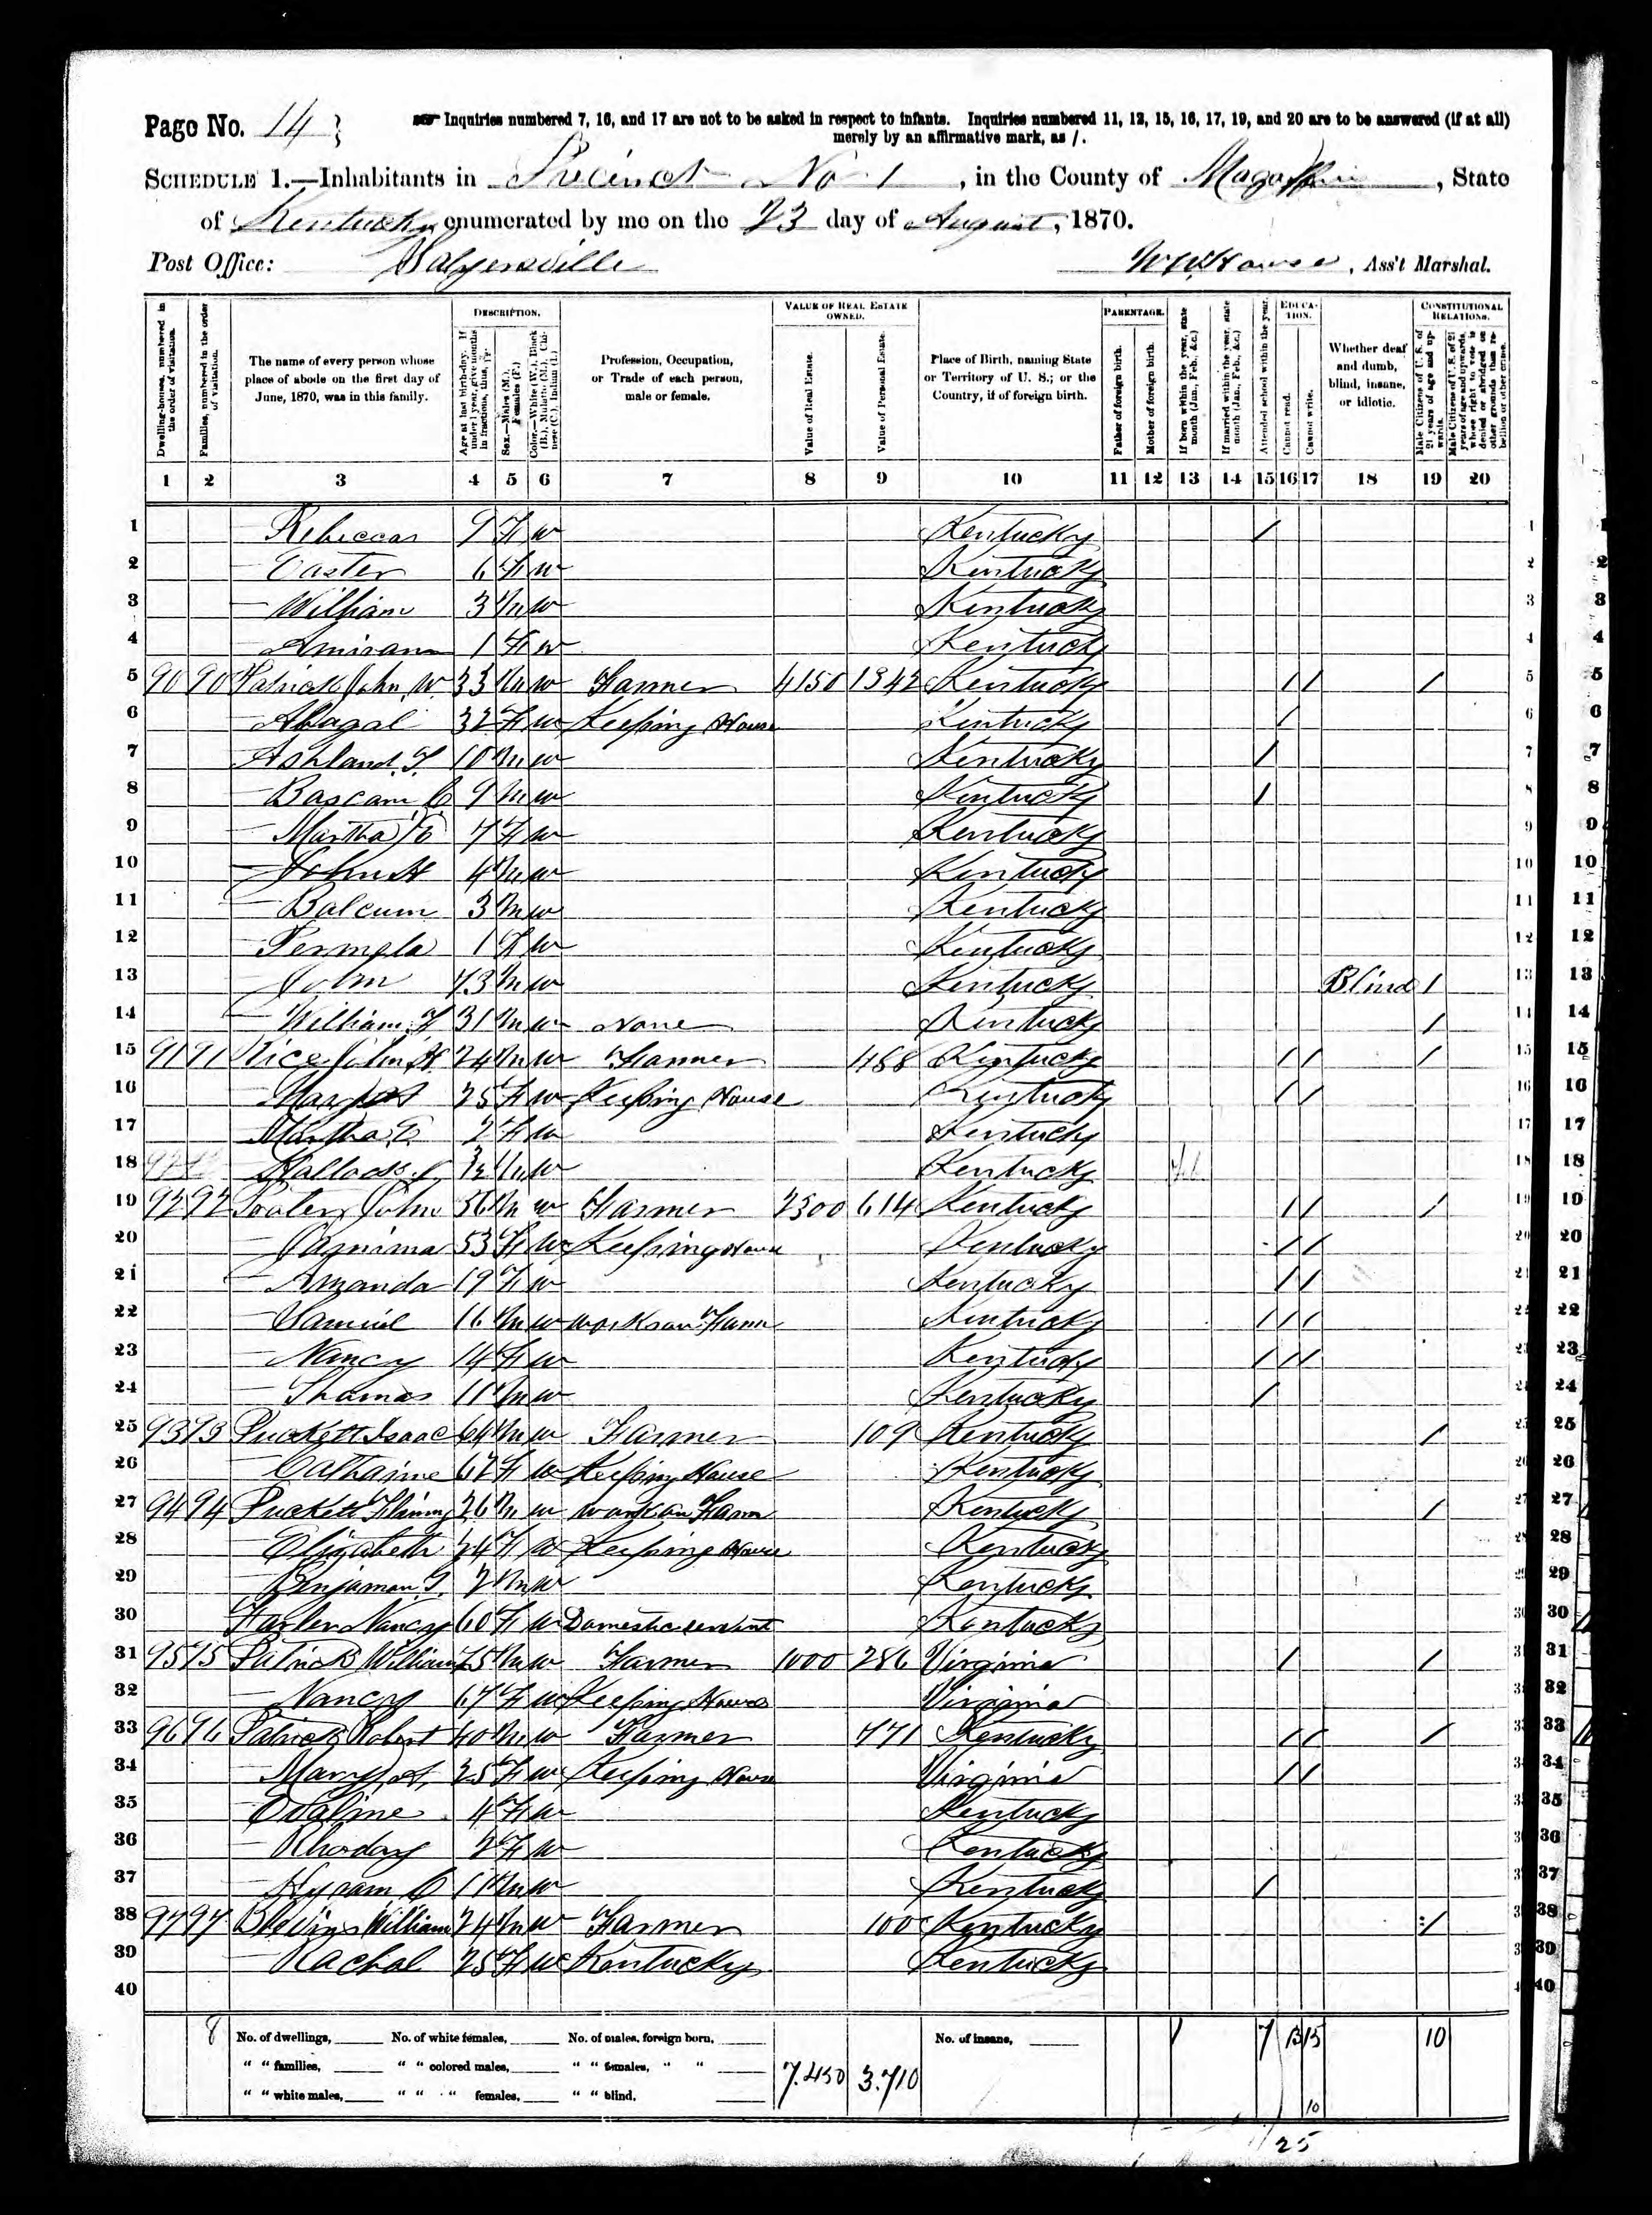 Page No. 14
Inquiries numbered 7, 16, and 17 are not to be asked in respect to infants. Inquiries numbered 11, 12, 15, 16, 17, 19, and 20 are to be answered (if at all)
merely by an affirmative mark, as /.
SCHEDULE 1.—Inhabitants in Precinct No 1, in the County of Magoffin, State
of Kentucky enumerated by me on the 23 day of August, 1870.
Post Office: Salyersville , Ass't Marshal.
DESCRIPTION. VALUE OF REAL ESTATE OWNED. PARENTAGE. EDUCATION. CONSTITUTIONAL RELATIONS.
Dwelling-houses, numbered in the order of visitation.
Families, numbered in the order of visitation.
The name of every person whose place of abode on the first day of June, 1870, was in this family.
Age at last birth-day. If under 1 year, give months in fractions, thus,
Sex.—Males (M.), Females (F.)
Color.—White (W.), Black (B.), Mulatto (M.), Chinese (C.), Indian (I.)
Profession, Occupation, or Trade of each person, male or female.
Value of Real Estate.
Value of Personal Estate.
Place of Birth, naming State or Territory of U. S.; or the Country, if of foreign birth.
Father of foreign birth.
Mother of foreign birth.
If born within the year, state month (Jan., Feb., &c.)
If married within the year, state month (Jan., Feb., &c.)
Attended school within the year.
Cannot read.
Cannot write.
Whether deaf and dumb, blind, insane, or idiotic.
Male Citizens of U. S. of 21 years of age and upwards.
Male Citizens of U. S. of 21 years of age and upwards, whose right to vote is denied or abridged on other grounds than rebellion or other crime.
1 2 3 4 5 6 7 8 9 10 11 12 13 14 15 16 17 18 19 20
1 — Rebecca 9 F W Kentucky / 1
2 — Easter 6 F W Kentucky 2
3 — William 3 M W Kentucky 3
4 — 1 F W Kentucky 4
5 90 90 Patrick John W 33 M W Farmer 4150 1342 Kentucky / / / 5
6 — Abagal 32 F W Keeping House Kentucky / 6
7 — Ashland T 10 M W Kentucky / 7
8 — Bascam C 9 M W Kentucky / 8
9 — Martha E 7 F W Kentucky 9
10 — John H 4 M W Kentucky 10
11 — Balcum 3 M W Kentucky 11
12 — Permela 1 F W Kentucky 12
13 — John 73 M W Kentucky Blind / 13
14 — William 31 M W None Kentucky / 14
15 91 91 Rice John H 24 M W Farmer 488 Kentucky / / / 15
16 — Mary 25 F W Keeping House Kentucky / / 16
17 — Martha E 2 F W Kentucky 17
18 — M W Kentucky 18
19 92 92 John 56 M W Farmer 2300 614 Kentucky / / / 19
20 — 53 F W Keeping House Kentucky / / 20
21 — Amanda 19 F W Kentucky / / 21
22 — Samuel 16 M W works on Farm Kentucky / / / 22
23 — Nancy 14 F W Kentucky / / / 23
24 — Thomas 11 M W Kentucky / 24
25 93 93 Puckett Isaac 64 M W Farmer 109 Kentucky / 25
26 — Catharine 62 F W Keeping House Kentucky 26
27 94 94 Puckett 26 M W work on Farm Kentucky / 27
28 — Elizabeth 24 F W Keeping House Kentucky 28
29 — Benjaman 2 M W Kentucky 29
30 Nancy 60 F W Domestic servant Kentucky 30
31 95 95 Patrick William 75 M W Farmer 1000 286 Virginia / / 31
32 — Nancy 67 F W Keeping House Virginia 32
33 96 96 Patrick Robert 40 M W Farmer 771 Kentucky / / / 33
34 — Mary A 25 F W Keeping House Virginia / / 34
35 — 4 F W Kentucky 35
36 — Rhoday 2 F W Kentucky 36
37 — Hyram C 11 M W Kentucky / 37
38 97 97 Blevins William 24 M W Farmer 100 Kentucky / 38
39 — Rachal 25 F W Kentucky Kentucky 39
40 40
8 No. of dwellings, No. of white females, No. of males, foreign born, 7.450 3.710 No. of insane, 1 7 13 15 10
" " families, " " colored males, " " females, " "
" " white males, " " " females, " " blind,
10
25